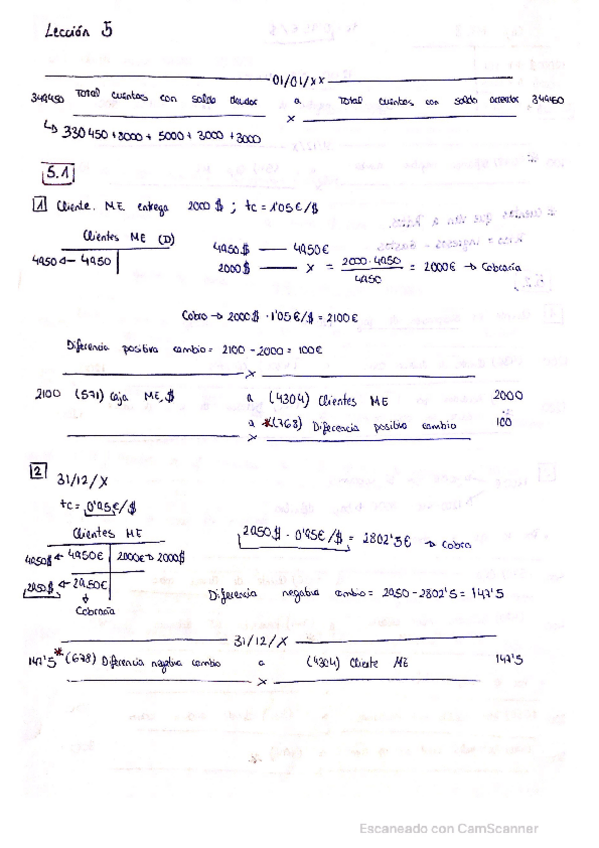 Lección 5
01/01/XX
349450 Total cuentas con saldo deudor a Total cuentas con saldo acreedor 349450
x
↳ 330450 + 8000 + 5000 + 3000 + 3000
5.1
1 Cliente. ME. entrega 2000 $ ; tc = 1'05 €/$
Clientes ME (D)
4950 ← 4950
4950 $ —— 4950 €
2000 $ —— x = 2000 · 4950 / 4950 = 2000 € → Cobraría
Cobro → 2000 $ · 1'05 €/$ = 2100 €
Diferencia positiva cambio = 2100 - 2000 = 100 €
x
2100 (571) Caja ME, $ a (4304) Clientes ME 2000
a *(768) Diferencia positiva cambio 100
x
2 31/12/X
tc = 0'95 €/$
Clientes ME
4950 $ ← 4950 € 2000 € → 2000 $
2950 $ ← 2950 €
Cobraría
2950 $ · 0'95 €/$ = 2802'5 € → Cobro
Diferencia negativa cambio = 2950 - 2802'5 = 147'5
31/12/X
147'5 * (678) Diferencia negativa cambio a (4304) Cliente ME 147'5
x
Escaneado con CamScanner